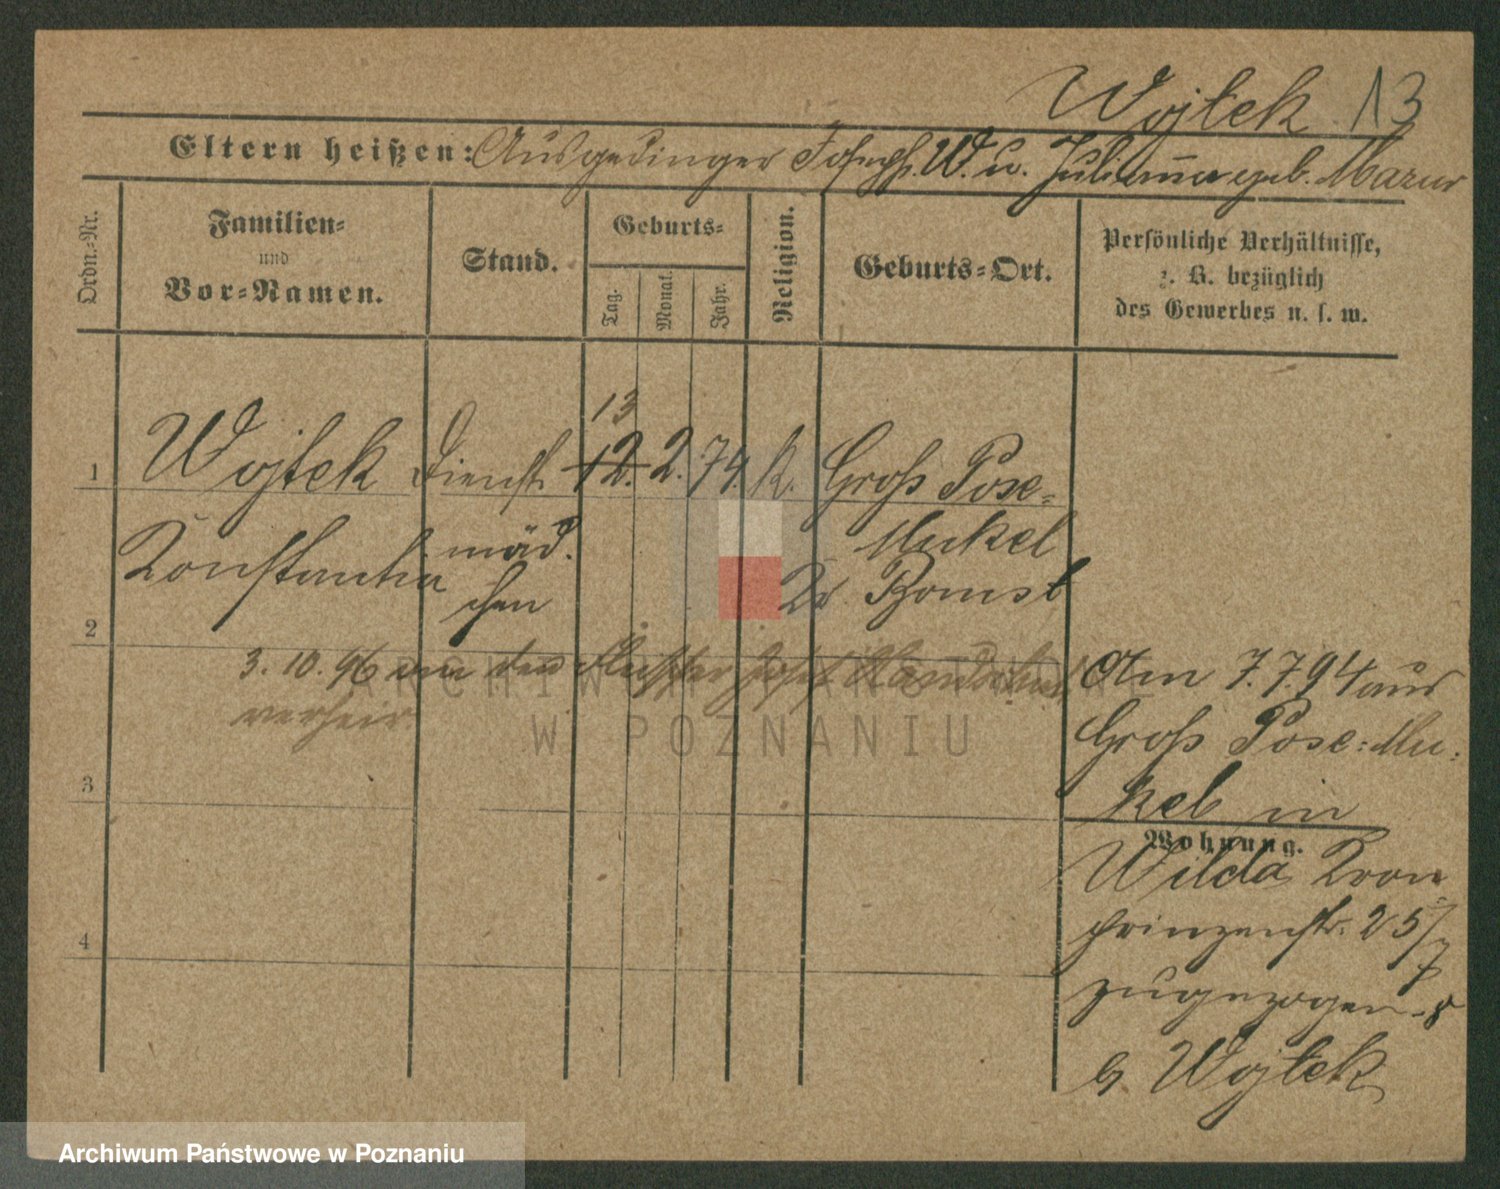 Wojtek 13
Eltern heißen: Ausgedinger Joseph W. u. Julianna geb. Mazur
Ordn.-Nr.
Familien-
und
Vor-Namen.
Stand.
Geburts-
Tag.
Monat.
Jahr.
Religion.
Geburts-Ort.
Persönliche Verhältnisse,
z. B. bezüglich
des Gewerbes u. s. w.
13
1 Wojtek Dienst 12. 2. 74. k. Groß Pose-
Konstantia mäd. Mukel
chen Kr. Bomst
2
3. 10. 96 an den Josef
verheir.
Am 7. 7. 94 aus
Groß Pose-Mu-
3
kel in
Wohnung.
Wilda Kron
prinzenstr. 25/7
4
zugezogen
b. Wojtek
ARCHIWUM PAŃSTWOWE
W POZNANIU
Archiwum Państwowe w Poznaniu